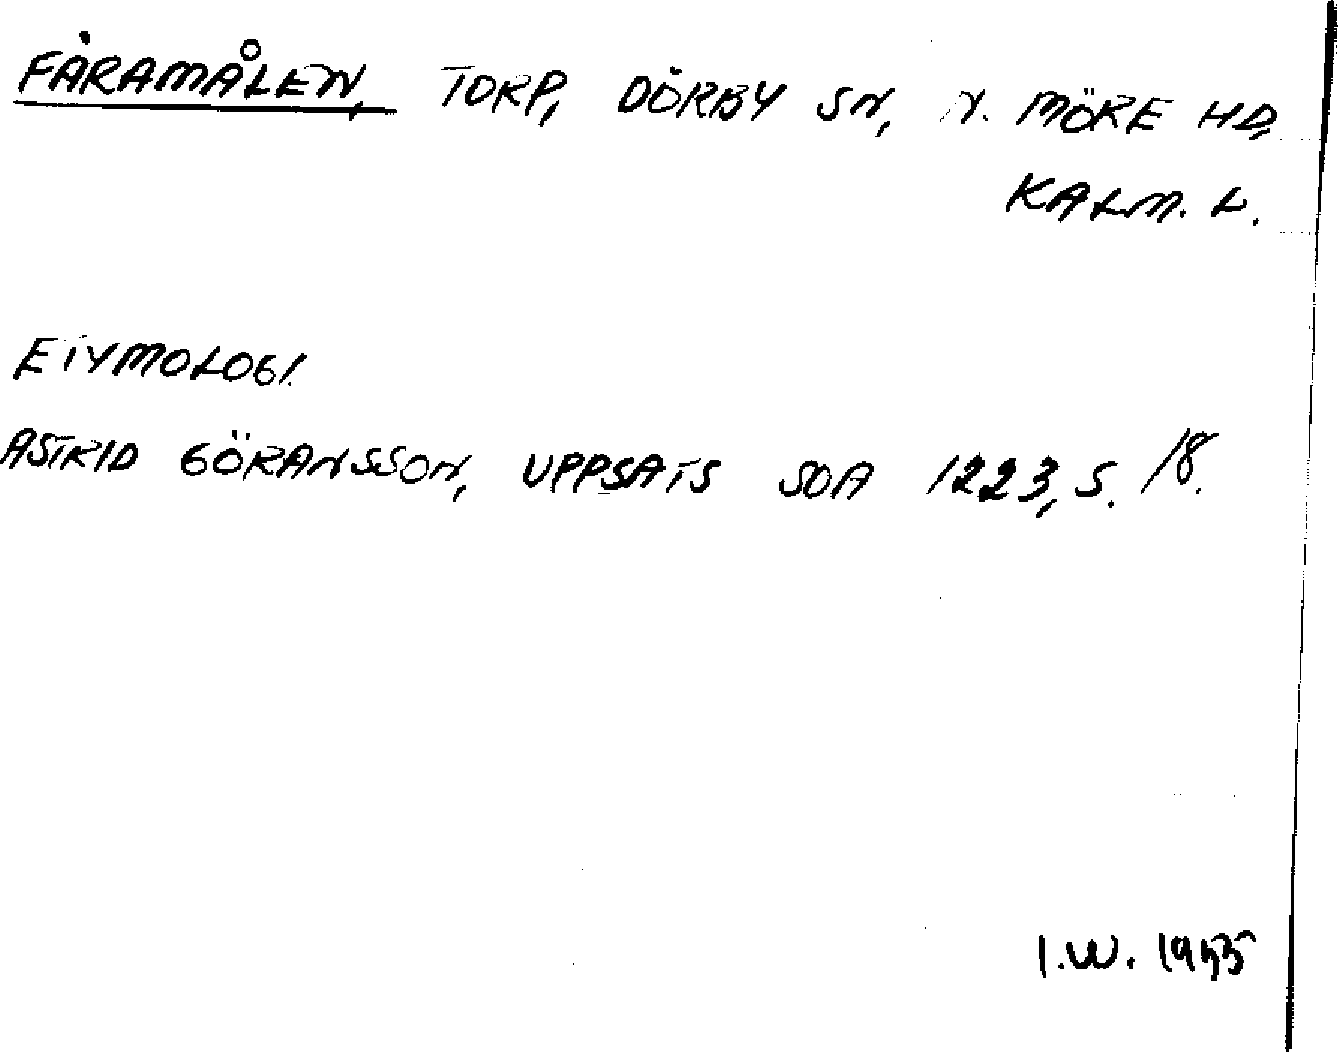 FÅRAMÅLEN, TORP, DÖRBY SN, N. MÖRE HD,
KALM. L.
ETYMOLOGI.
ASTRID GÖRANSSON, UPPSATS SOA 1223, S. 18.
I.W. 1955